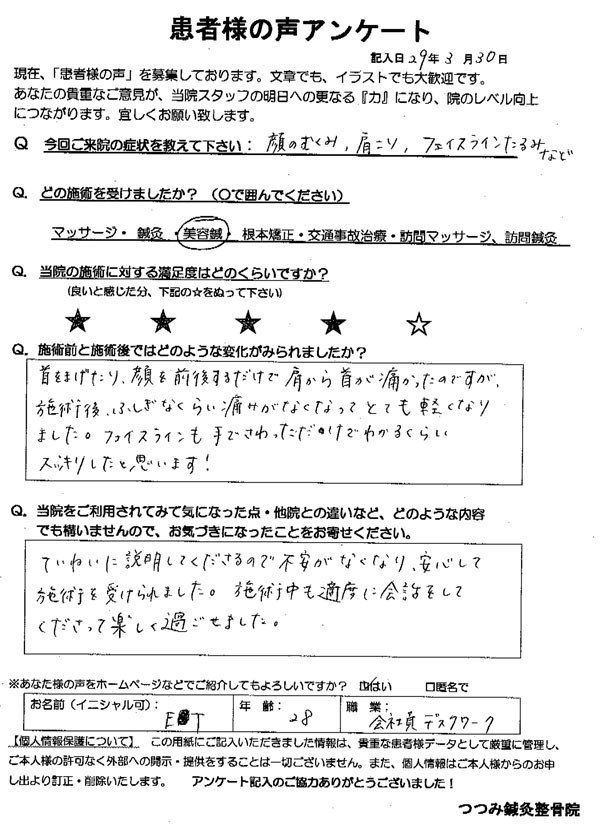 患者様の声アンケート
記入日 29年 3 月 30日
現在、「患者様の声」を募集しております。文章でも、イラストでも大歓迎です。
あなたの貴重なご意見が、当院スタッフの明日への更なる『力』になり、院のレベル向上
につながります。宜しくお願い致します。
Q 今回ご来院の症状を教えて下さい： 顔のむくみ, 肩こり, フェイスラインたるみ
など
Q. どの施術を受けましたか？（〇で囲んでください）
マッサージ・ 鍼灸 ・美容鍼・ 根本矯正・交通事故治療・訪問マッサージ、訪問鍼灸
Q. 当院の施術に対する満足度はどのくらいですか？
(良いと感じた分、下記の☆をぬって下さい)
★ ★ ★ ★ ☆
Q. 施術前と施術後ではどのような変化がみられましたか？
首をまげたり、顔を前後するだけで肩から首が痛かったのですが、
施術後、ふしぎなくらい痛みがなくなってとても軽くなり
ました。フェイスラインも手でさわっただけでわかるくらい
スッキリしたと思います！
Q. 当院をご利用されてみて気になった点・他院との違いなど、どのような内容
でも構いませんので、お気づきになったことをお寄せください。
ていねいに説明してくださるので不安がなくなり、安心して
施術を受けられました。 施術中も適度に会話をして
くださって楽しく過ごせました。
※あなた様の声をホームページなどでご紹介してもよろしいですか？ ☑はい □匿名で
お名前（イニシャル可）： E T 年 齢： 28 職 業： 会社員 デスクワーク
【個人情報保護について】 この用紙にご記入いただきました情報は、貴重な患者様データとして厳重に管理し、
ご本人様の許可なく外部への開示・提供をすることは一切ございません。また、個人情報はご本人様からのお申
し出より訂正・削除いたします。 アンケート記入のご協力ありがとうございました！
つつみ鍼灸整骨院